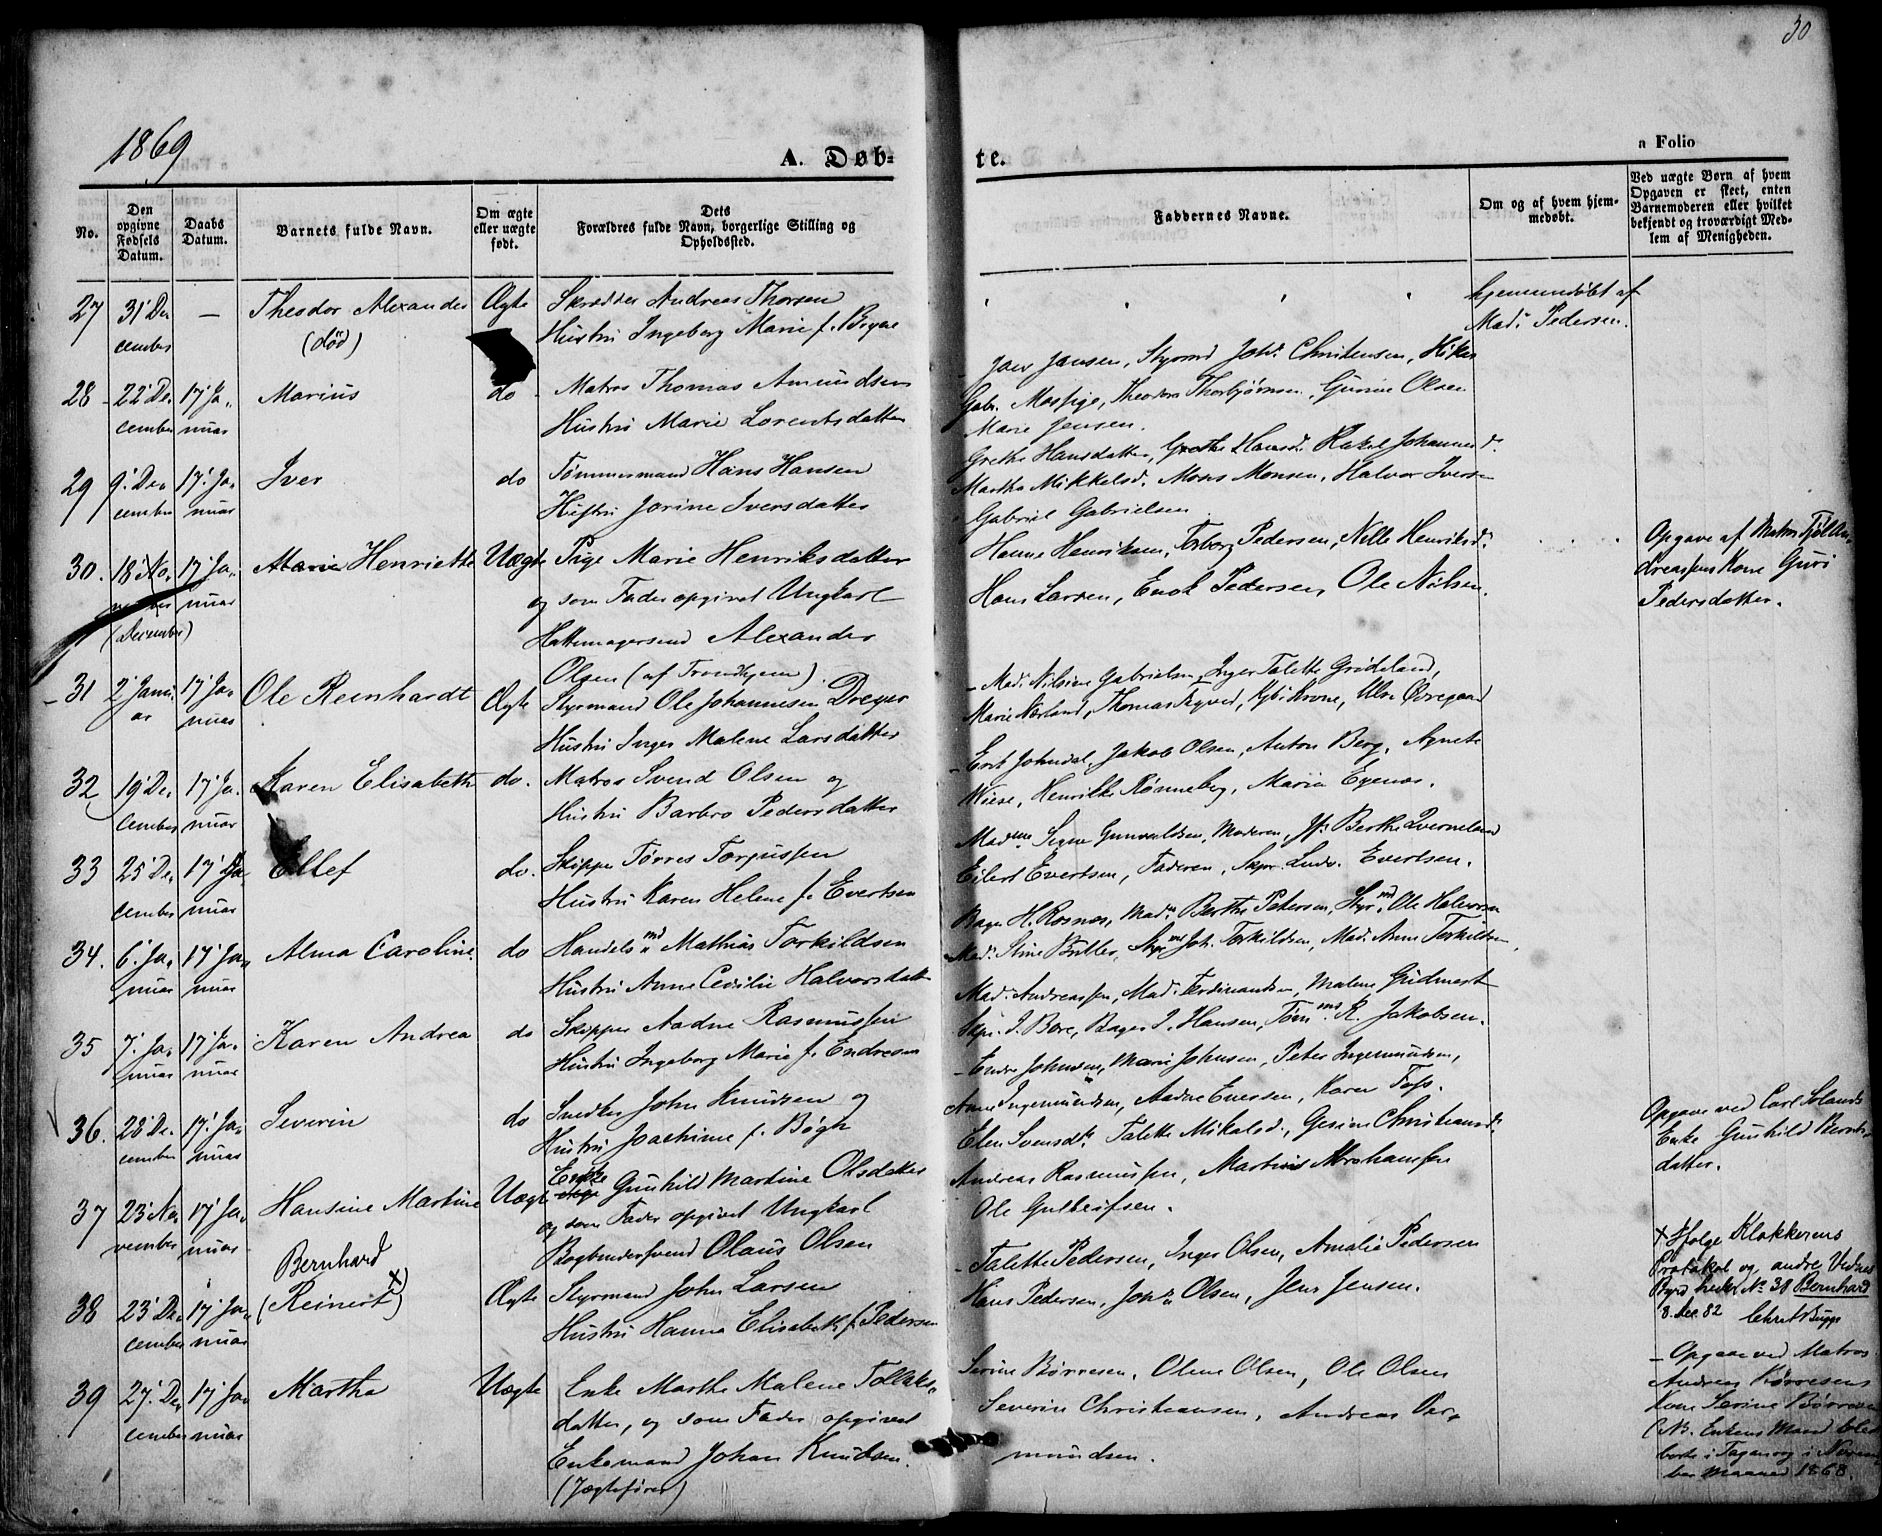 30
1869
A. Døb-
te.
a Folio
No.
Den opgivne Fødsels Datum.
Daabs Datum.
Barnets fulde Navn.
Om ægte eller uægte født.
Dets Forældres fulde Navn, borgerlige Stilling og Opholdssted.
Faddernes Navne.
Om og af hvem hjem-
medøbt.
Ved uægte Børn af hvem
Opgaven er skeet, enten
Barnemoderen eller hvilket
bekjendt og troværdigt Med-
lem af Menigheden.
27 31 De
cember — Theodor Alexander
(død) Ægte Skrædder Andreas Thorsen
Hustru Ingeborg Marie f. Bryne
hjemmedøbt af
Mad. Pedersen.
28 22 De
cember 17 Ja
nuar Marius do Matros Thomas Amundsen
Hustru Marie Lorentsdatter
Jens Jansen, Styrmd Joh. Christensen,
Gabr. Theodor Thorbjørnsen, Gurine Olsen
Marie Jensen.
29 9 De
cember 17 Ja
nuar Iver do Tømmermand Hans Hansen
Hustru Jorine Iversdatter
Grethe Hansdatter, Grethe Hansd. Rakel Johannesd.
Martha Mikkelsd. Mons Monsen, Halvor Iversen
Gabriel Gabrielsen
30. 18 No
vember
(December) 17 Ja
nuar Marie Henriette Uægte Pige Marie Henriksdatter
og som Fader opgivet Ungkarl
Hattemagersvend Alexander
Olsen (af Trondhjem).
Hanne Henriksen, Torborg Pedersen, Nille Henriksd.
Hans Larsen, Enok Pedersen, Ole Nilsen.
Opgave af Matros
Kone Guri
Pedersdatter.
31 2 Janu
ar 17 Ja
nuar Ole Reinhardt Ægte Styrmand Ole Johannesen Dreyer
Hustru Inger Malene Larsdatter
Mad. Nilsine Gabrielsen, Inger Talette Grødeland,
Marie Nærland, Thomas
32 19 De
cember 17 Ja
nuar Karen Elisabeth do. Matros Svend Olsen og
Hustru Barbro Pedersdatter
Jakob Olsen, Anton Berg, Agnete
Wiese, Henrikke Rønneberg, Maria Egenæs.
33 25 De
cember 17 Ja
nuar Ellef do. Skipper Tørres Torgussen
Hustru Karen Helene f. Evertsen
Signe Gunvaldsen, Moderen, Jfr Berthe Qverneland
Eilert Evertsen, Faderen, Skpr. Ludv. Evertsen.
34. 6 Ja
nuar 17 Ja
nuar Alma Caroline do Handelsmd Mathias Torkildsen
Hustru Anne Cecilie Halvorsdatt
Bager H. Rosnes, Mad. Berthe Petersen, Styrmd Ole Halvorsen
Mad. Stine Butler, Joh. Torkildsen, Mad. Anne Torkildsen.
35 7 Ja
nuar 17 Ja
nuar Karen Andrea do Skipper Aadne Rasmussen
Hustru Ingeborg Marie f. Endresen
Mad. Andreassen, Mad. Ferdinandsen, Malene Gudmest
Skpr. I. Bore, Bager I. Hansen, R. Jakobsen.
36. 28 De
cember 17 Ja
nuar Severin do Snedker John Knudsen og
Hustru Joachime f. Bøgh
Endre Johnsen, Marie Johnsen, Peter Ingemundsen,
Anne Ingemundsen, Aadne Evensen, Karen Foss.
37 23 No
vember 17 Ja
nuar Hansine Martine Uægte Enke Gunhild Martine Olsdatter
og som Fader opgivet Ungkarl
Bogbindersvend Olaus Olsen
Elen Svensdtr. Talette Mikalsd., Gesine Christiansd.
Andreas Rasmussen, Martinus Abrahamsen
Ole Gulbrifsen.
Opgave ved Carl Solands
Enke Gunhild Bernts
datter.
38 23 De
cember 17 Ja
nuar Bernhard
(Reinert) × Ægte Styrmand John Larsen
Hustru Hanna Elisabeth f. Pedersen
Talette Pedersen, Inger Olsen, Amalie Pedersen
Hans Pedersen, John Olsen, Jens Jensen.
× Ifølge Klokkerens
Protokol og andre Vidnes
Byrd heder No 38 Bernhard
8 Dec. 82
39 27 De
cember 17 Ja
nuar Martha Uægte Enke Marthe Malene Tollaks
datter, og som Fader opgivet
Enkemand Johan Knudsen.
(Jægtefører)
Serine Børresen, Olene Olsen, Ole Olsen
Severin Christiansen, Andreas
mundsen.
Opgave ved Matros
Andreas Børresens
Kone Serine Børresen
(NB. Enkens Mand bled
borte i Taganrog i Novem
ber Maaned 1868.